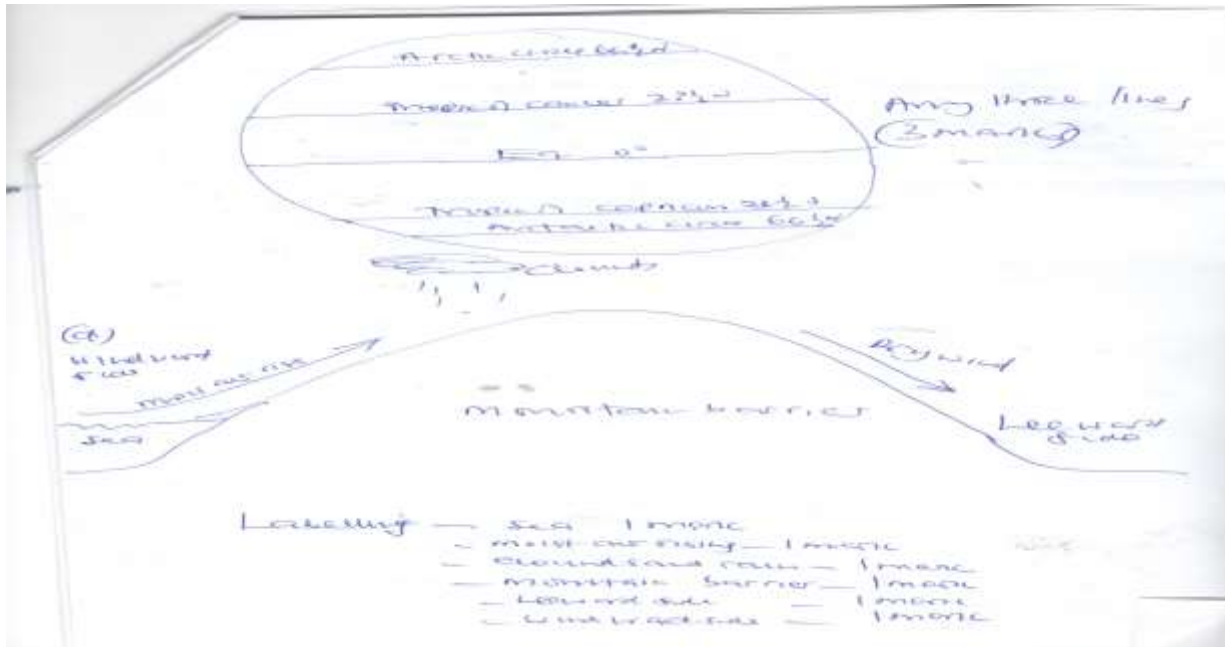 Arctic circle 66½N
Tropic of cancer 23½ N
Eq 0°
Tropic of capricorn 23½ S
Antarctic circle 66½
Any three lines
(3 marks)
Clouds
(a)
Windward
side
moist air rise
sea
Mountain barrier
Dry wind
Leeward
side
Labelling — sea 1 mark
- moist air rising — 1 mark
- clouds and rain — 1 mark
- mountain barrier — 1 mark
- Leeward side — 1 mark
- windward side — 1 mark